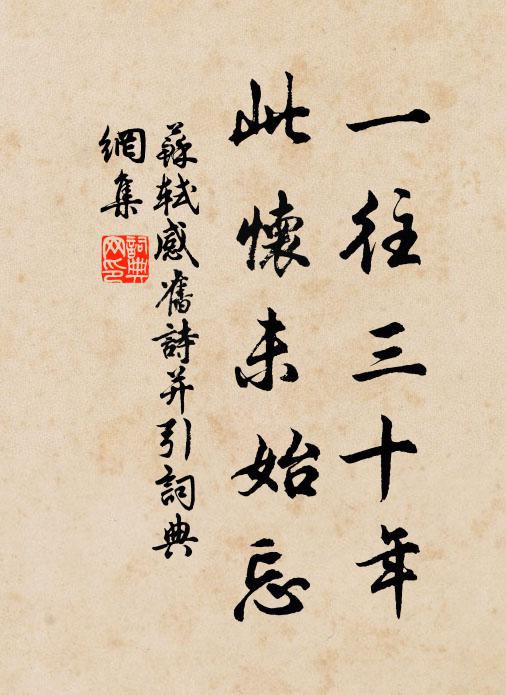 一往三十年
此懷未始忘
蘇軾感舊詩并引詞典
網集
詞典
网印